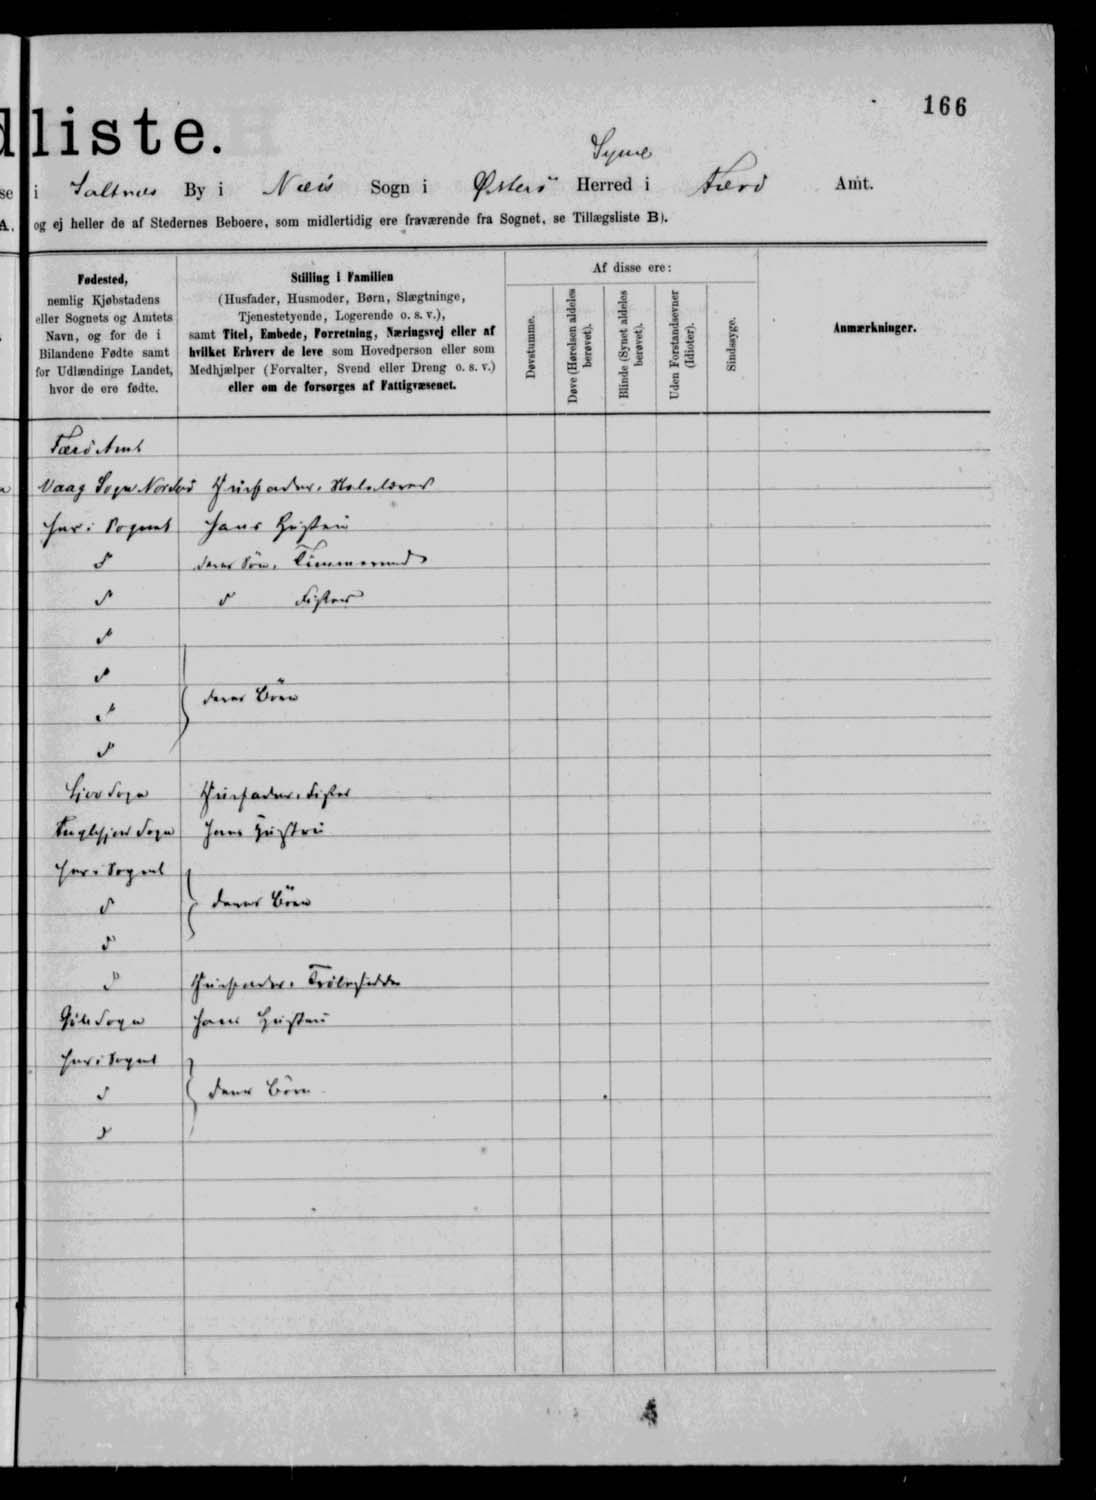 166
dliste.
Syssel
se i Saltnæs By i Næs Sogn i Østerö Herred i Færö Amt.
A, og ej heller de af Stedernes Beboere, som midlertidig ere fraværende fra Sognet, se Tillægsliste B).
Fødested,
nemlig Kjøbstadens
eller Sognets og Amtets
Navn, og for de i
Bilandene Fødte samt
for Udlændinge Landet,
hvor de ere fødte.
Stilling i Familien
(Husfader, Husmoder, Børn, Slægtninge,
Tjenestetyende, Logerende o. s. v.),
samt Titel, Embede, Forretning, Næringsvej eller af
hvilket Erhverv de leve som Hovedperson eller som
Medhjælper (Forvalter, Svend eller Dreng o. s. v.)
eller om de forsørges af Fattigvæsenet.
Af disse ere:
Døvstumme.
Døve (Hørelsen aldeles
berøvet).
Blinde (Synet aldeles
berøvet).
Uden Forstandsevner
(Idioter).
Sindssyge.
Anmærkninger.
Færö Amt
Vaag Sogn Norderö Huusfader, Skolelærer
her i Sognet hans Hustru
d deres Sön, Tømmermand
d d Fisker
d
d
d deres Börn
d
Sogn Huusfader, Fisker
Fuglefjord Sogn hans Hustru
her i Sognet
d deres Börn
d
d Huusfader,
Sogn hans Hustru
her i Sognet
d deres Börn
d